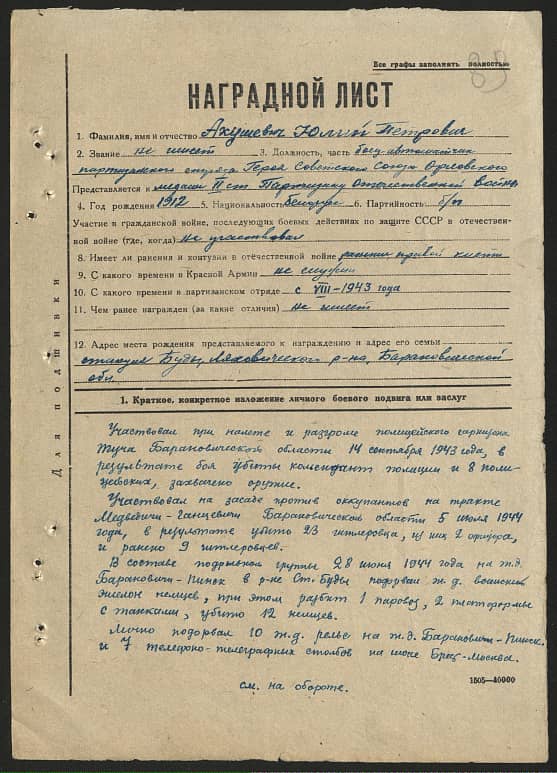 Все графы заполнять полностью
89
НАГРАДНОЙ ЛИСТ
1. Фамилия, имя и отчество Ахушевич Юлий Петрович
2. Звание не имеет 3. Должность, часть боец-автоматчик
партизанского отряда Героя Советского Союза
Представляется к медали II ст. Партизану Отечественной Войны
4. Год рождения 1912 5. Национальность белорус 6. Партийность б/п
Участие в гражданской войне, последующих боевых действиях по защите СССР в отечествен-
ной войне (где, когда) не участвовал
8. Имеет ли ранения и контузии в отечественной войне ранения правой кисти
9. С какого времени в Красной Армии не служил
10. С какого времени в партизанском отряде с VIII-1943 года
11. Чем ранее награжден (за какие отличия) не имеет
12. Адрес места рождения представляемого к награждению и адрес его семьи
станция Буды, Ляховического р-на, Барановичской
обл.
Для подшивки
1. Краткое, конкретное изложение личного боевого подвига или заслуг
Участвовал при налете и разгроме полицейского гарнизона
Туча Барановической области 14 сентября 1943 года, в
результате боя убиты комендант полиции и 8 поли-
цейских, захвачено оружие.
Участвовал на засаде против оккупантов на тракте
Медвевичи-Ганцевичи Барановической области 5 июля 1944
года, в результате убито 23 гитлеровца, из них 2 офицера,
и ранено 9 гитлеровцев.
В составе подрывной группы 28 июня 1944 года на ж.д.
Барановичи-Пинск в р-не Ст. Буды подорвал ж.д. воинский
эшелон немцев, при этом разбит 1 паровоз, 2 платформы
с танками, убито 12 немцев.
Лично подорвал 10 ж.д. рельс на ж.д. Барановичи-Пинск.
и 7 телефоно-телеграфных столбов на шоссе Брест-Москва.
см. на обороте.
1505—40000